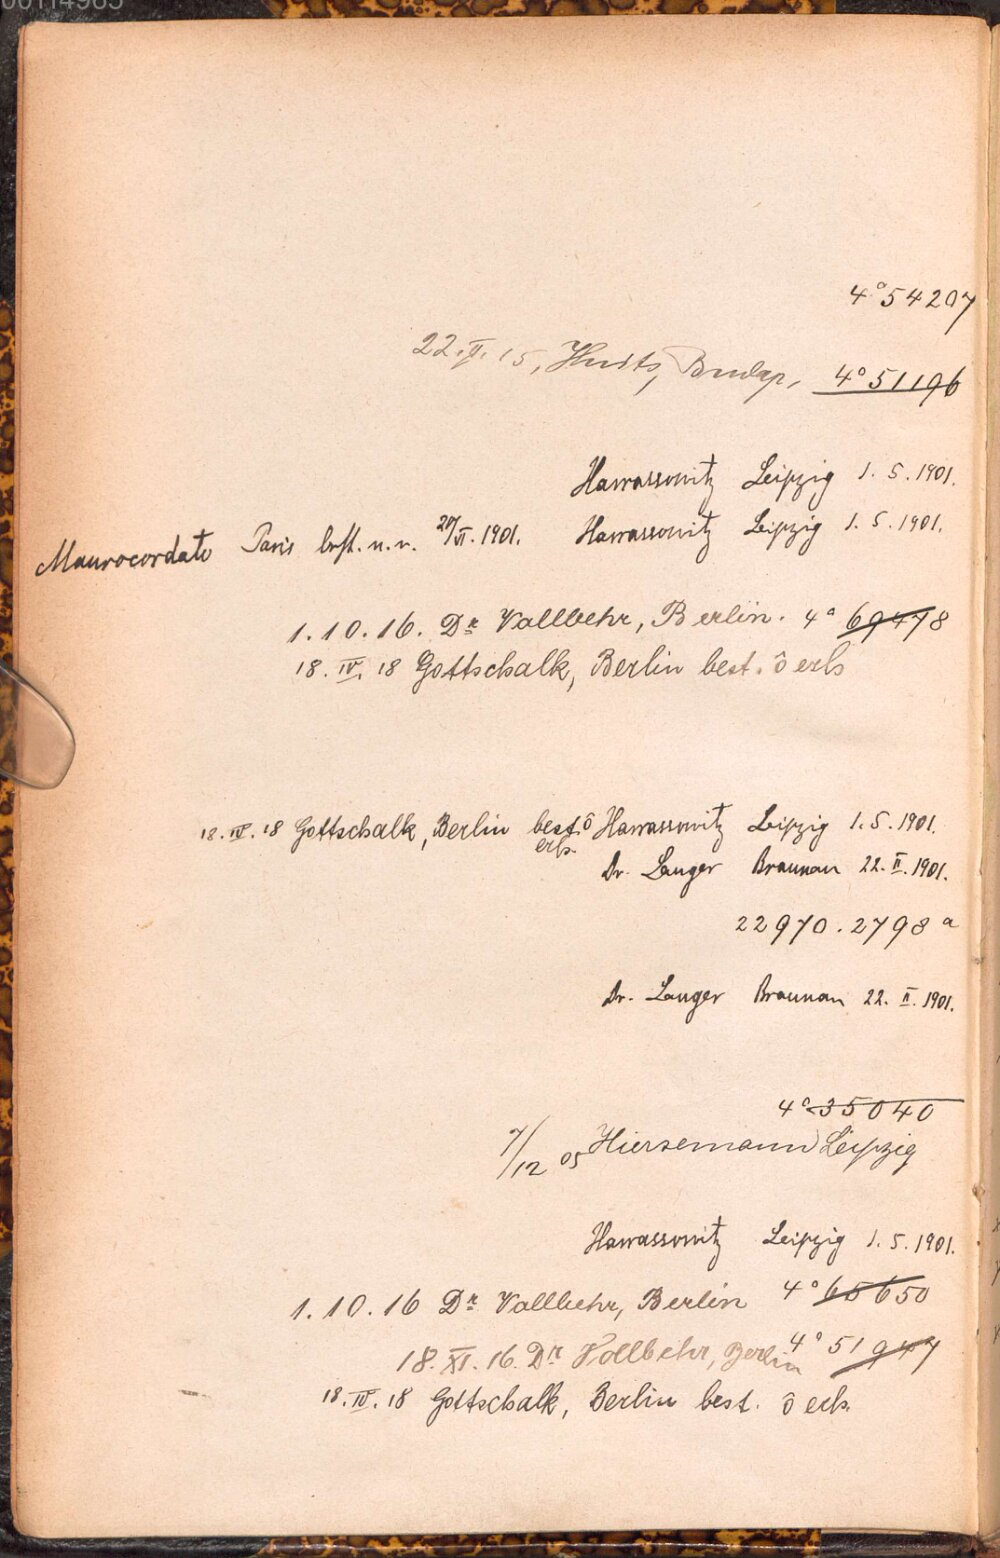 00114985
4° 54207
22. 15, Budap, 4° 51196
Harrassowitz Leipzig 1. 5. 1901.
Maurocordato Paris best. u. v. 20/VI. 1901. Harrassowitz Leipzig 1. 5. 1901.
1. 10. 16. Dr Vollbehr, Berlin. 4° 69478
18. IV. 18 Gottschalk, Berlin best. ô erh
18. IV. 18 Gottschalk, Berlin best. ô Harrassowitz Leipzig 1. 5. 1901.
erh.
Dr. Langer Braunau 22. II. 1901.
22970. 2798 a
Dr. Langer Braunau 22. II. 1901.
4° 35040
7/12 05 Hiersemann Leipzig
Harrassowitz Leipzig 1. 5. 1901.
1. 10. 16 Dr Vollbehr, Berlin 4° 65650
18. XI. 16. Dr Vollbehr, Berlin 4° 51947
18. IV. 18 Gottschalk, Berlin best. ô erh.